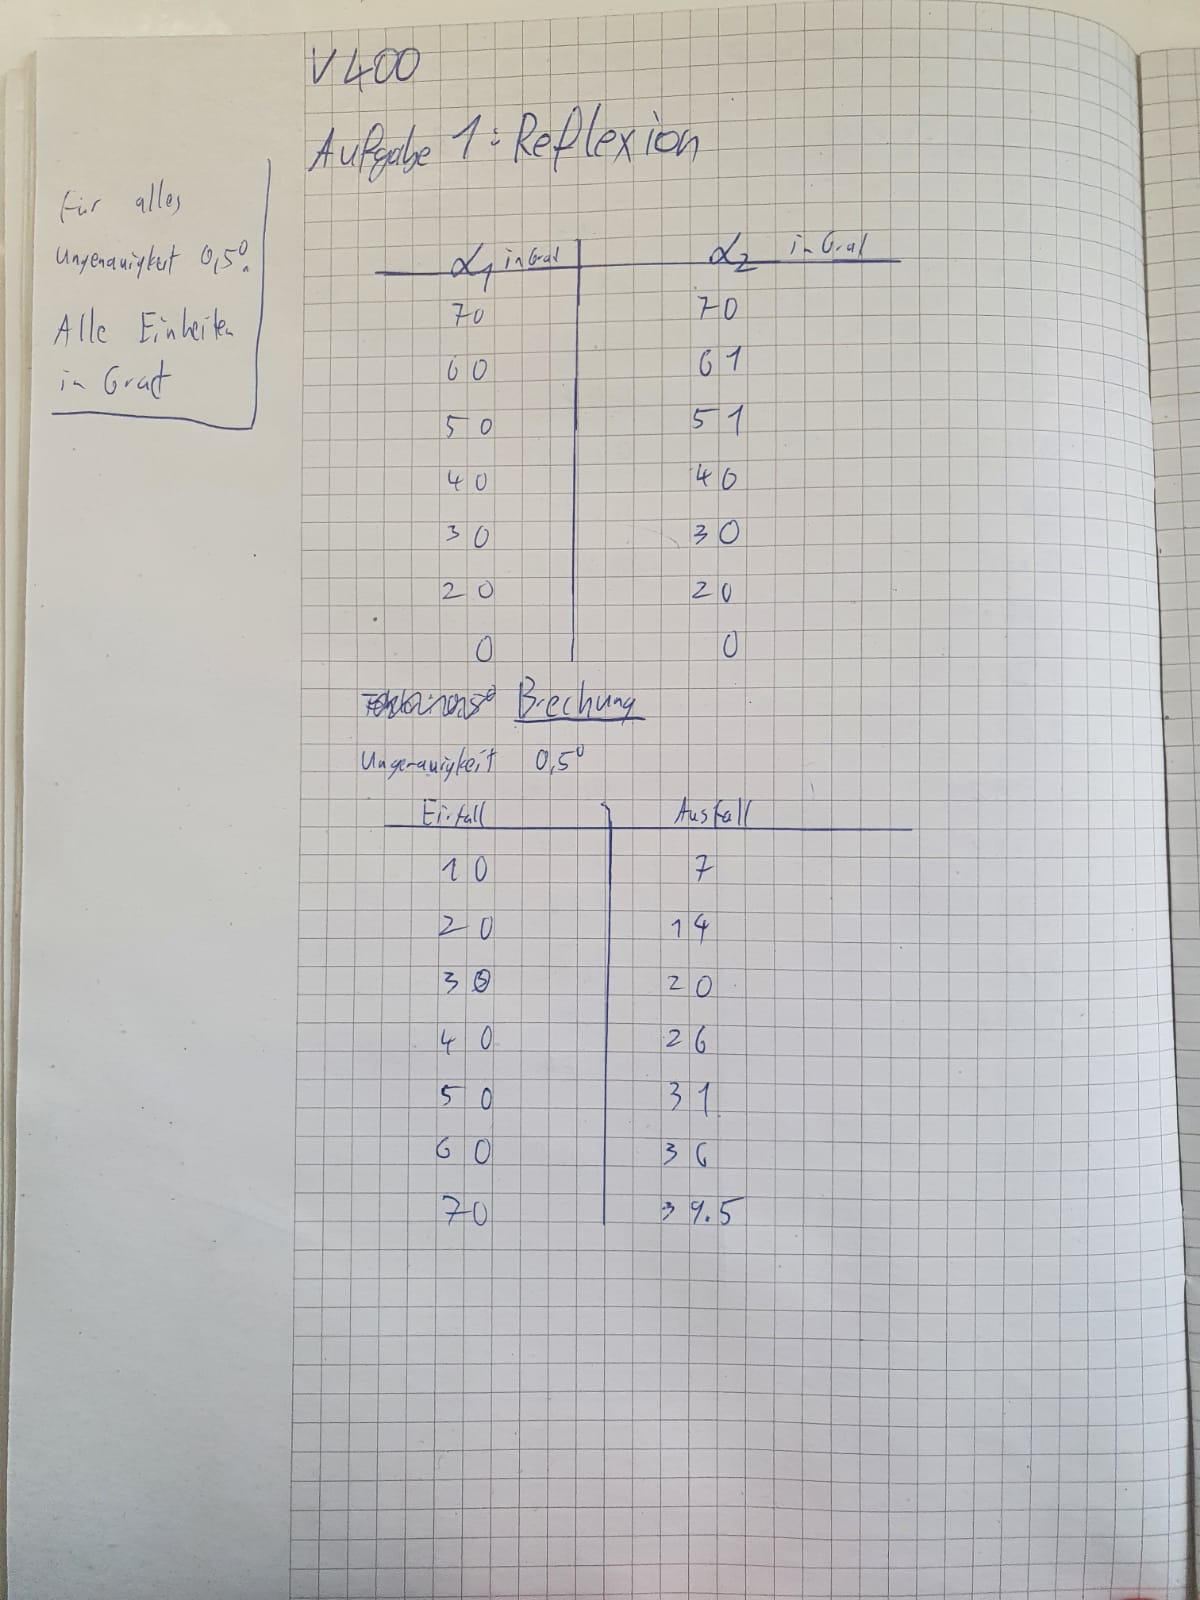 V400
Aufgabe 1: Reflexion
Für alles
Ungenauigkeit 0,5°.
Alle Einheiten
in Grad
α1 in Grad α2 in Grad
70 70
60 61
50 51
40 40
30 30
20 20
0 0
Brechung
Ungenauigkeit 0,5°
Einfall Ausfall
10 7
20 14
30 20
40 26
50 31
60 36
70 39.5